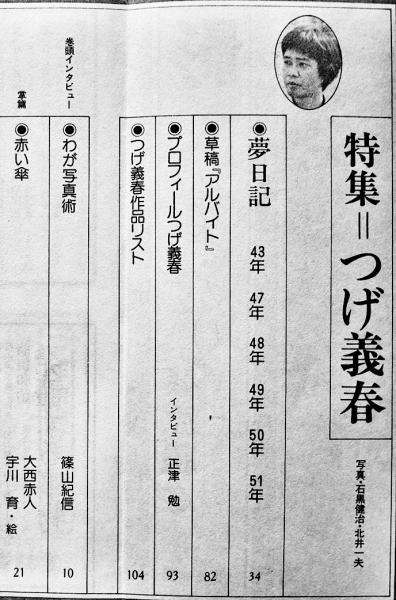 特集＝つげ義春
写真・石黒健治・北井一夫
●夢日記 43年 47年 48年 49年 50年 51年 34
●草稿『アルバイト』 82
●プロフィールつげ義春 インタビュー 正津 勉 93
●つげ義春作品リスト 104
巻頭インタビュー
●わが写真術 篠山紀信 10
掌篇
●赤い傘 大西赤人
宇川 育・絵 21